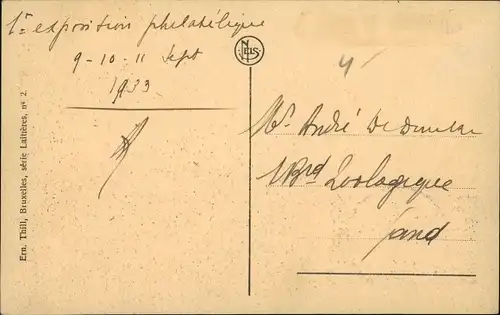 1re exposition philatélique
9-10-11 Sept
1933
NELS
Ern. Thill, Bruxelles, série Laitières, nº 2.
Mr André De
Brd Zoologique
Gand